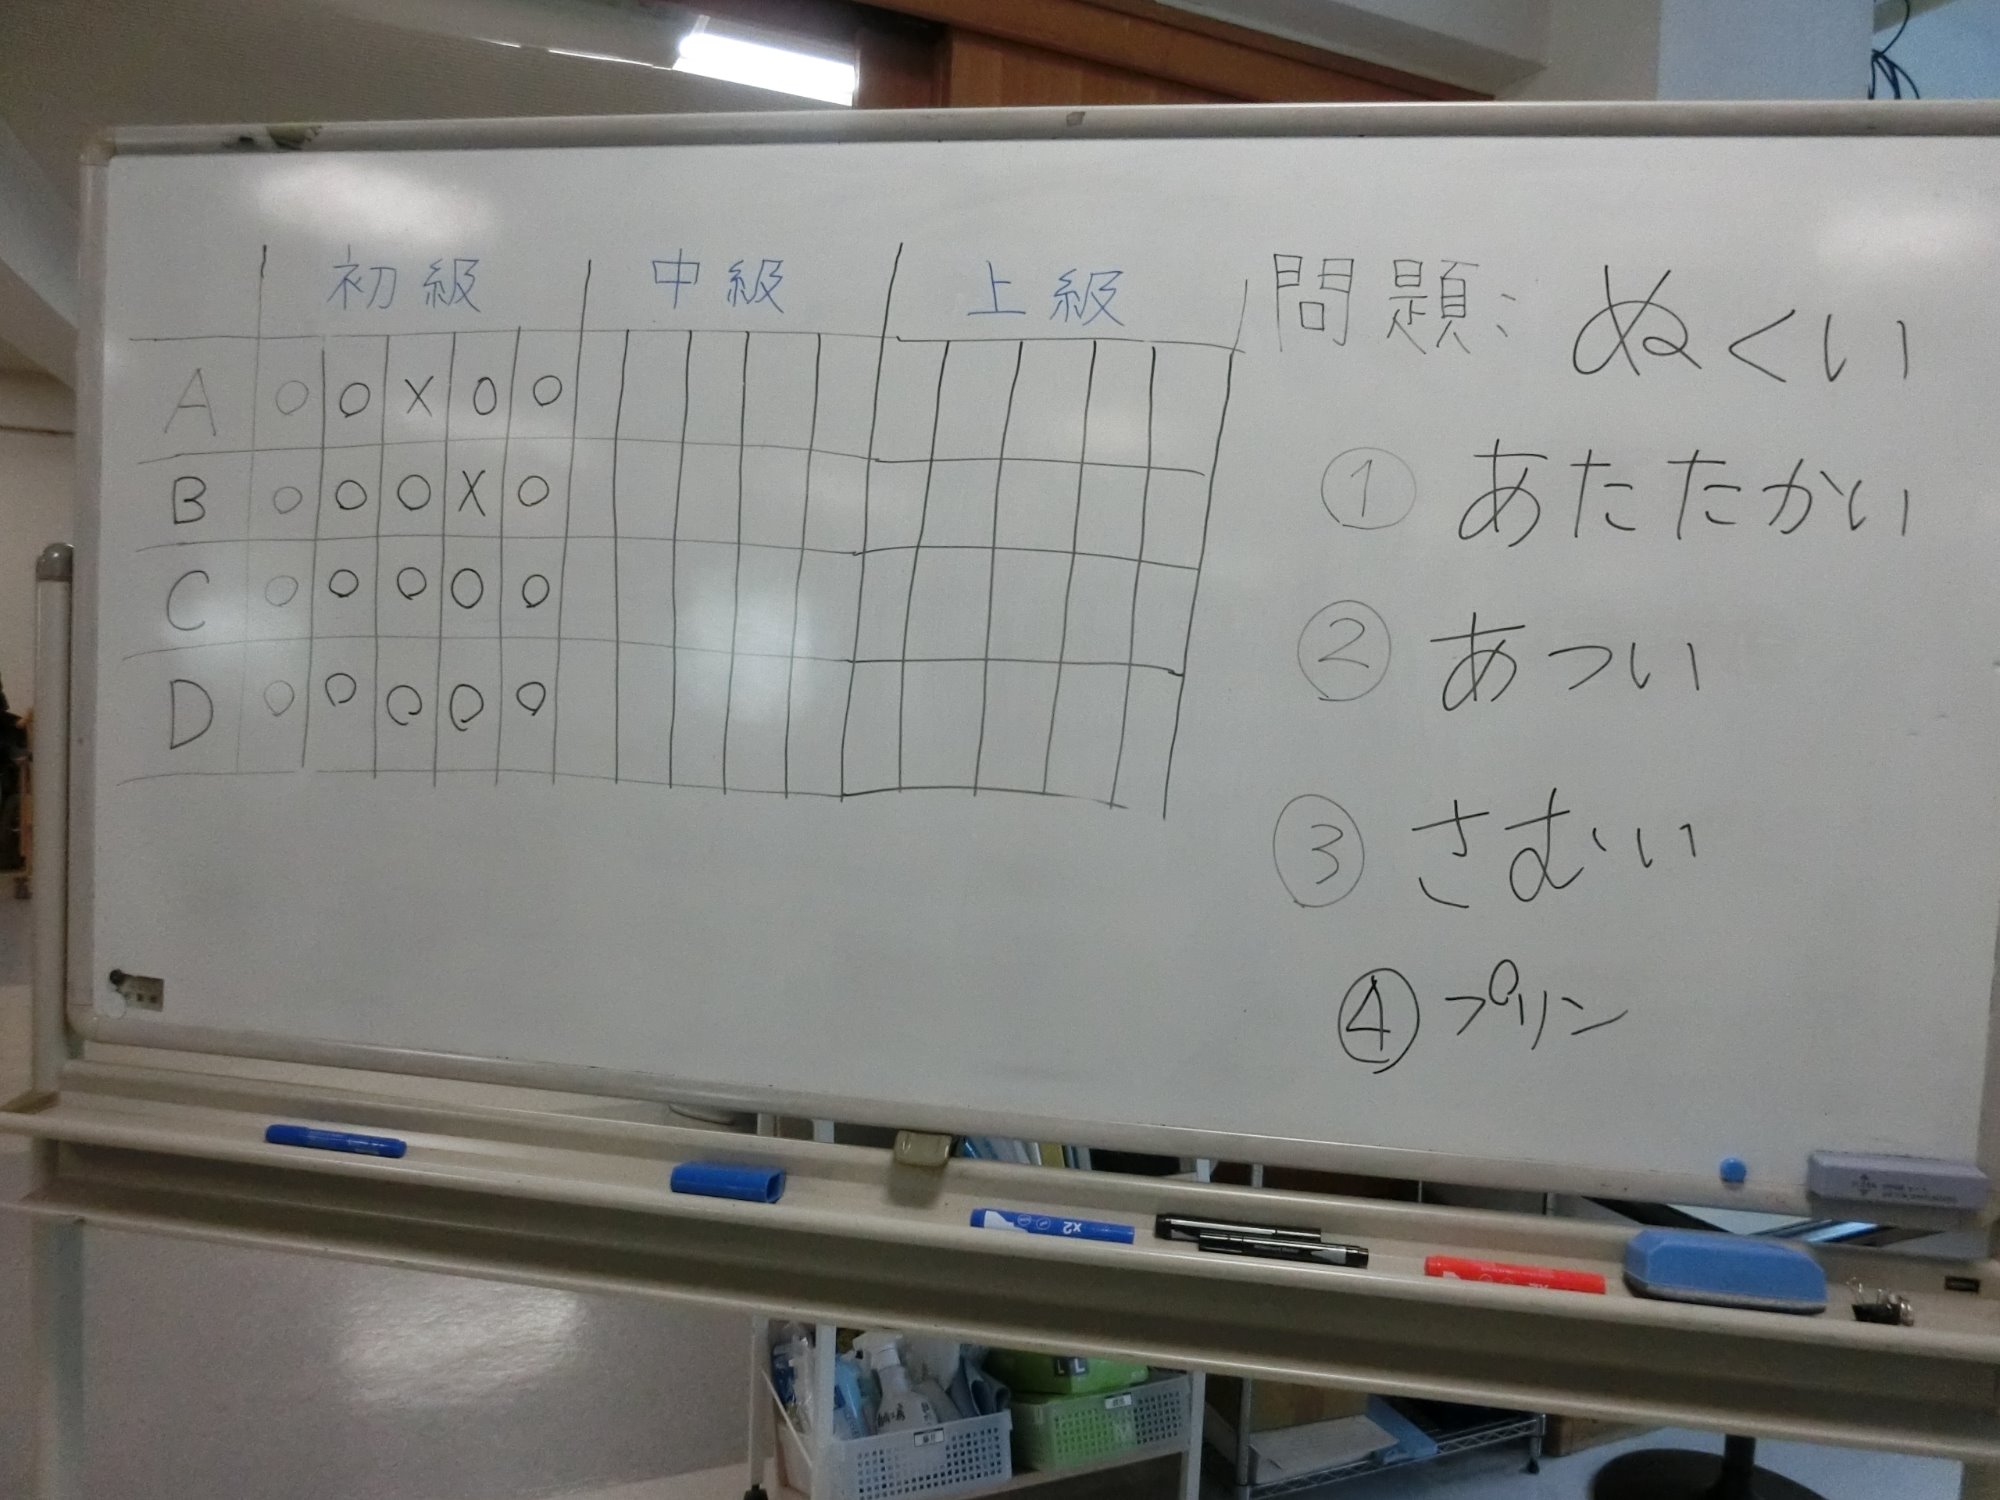 初級 中級 上級
A ○ ○ × ○ ○
B ○ ○ ○ × ○
C ○ ○ ○ ○ ○
D ○ ○ ○ ○ ○
問題: ぬくい
① あたたかい
② あつい
③ さむい
④ プリン
x2